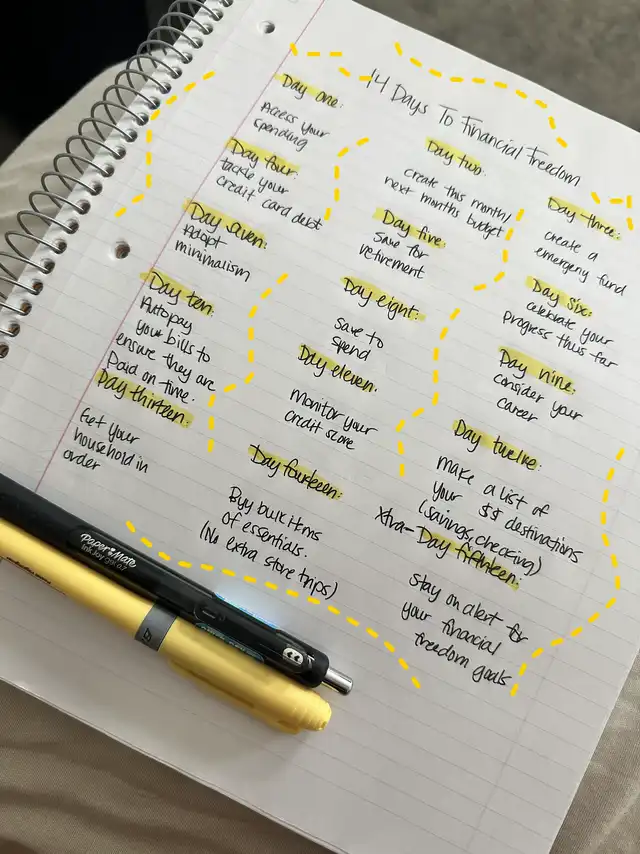 14 Days To Financial Freedom
Day one:
Access your
spending
Day two:
create this month/
next months budget
Day three:
create a
emergency fund
Day four:
tackle your
credit card debt
Day five:
save for
retirement
Day six:
celebrate your
progress thus far
Day seven:
Adopt
minimalism
Day eight:
Save to
spend
Day nine:
consider your
career
Day ten:
Autopay
your bills to
ensure they are
Paid on time.
Day eleven:
Monitor your
credit score
Day twelve:
make a list of
your $$ destinations
(savings, checking)
Day thirteen:
Get your
household in
order
Day fourteen:
Buy bulk items
of essentials.
(No extra store trips)
Xtra- Day fifteen:
stay on alert for
your financial
freedom goals
Paper Mate
InkJoy gel 0.7